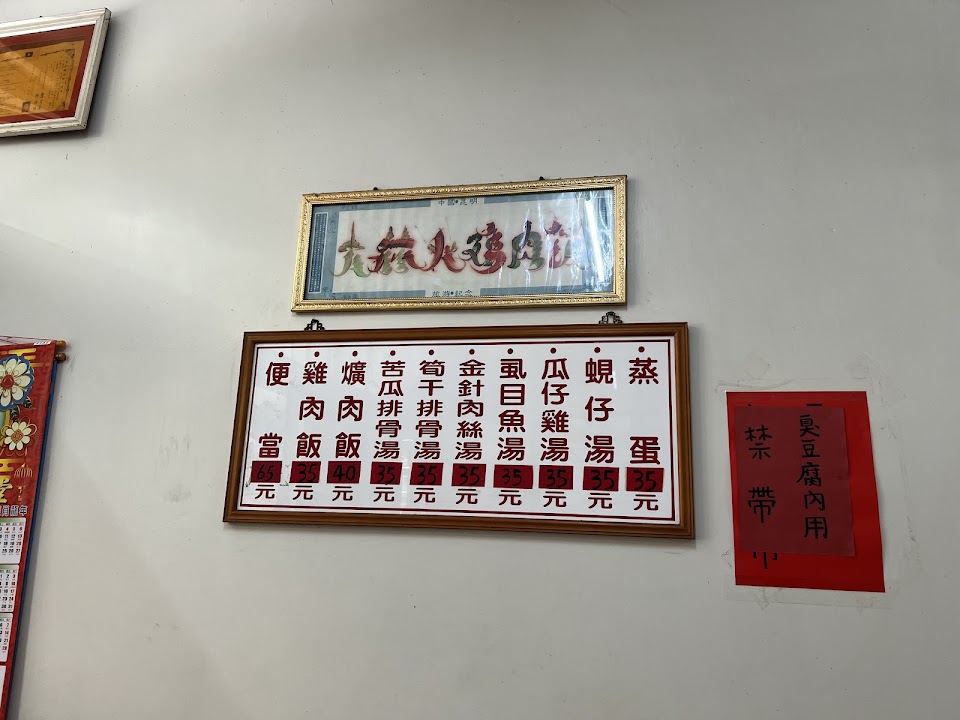 中國•昆明
火雞肉飯
紀念
蒸蛋35元
蜆仔湯35元
瓜仔雞湯35元
虱目魚湯35元
金針肉絲湯35元
筍干排骨湯35元
苦瓜排骨湯35元
爌肉飯40元
雞肉飯35元
便當65元
臭豆腐內用
禁帶
龍年